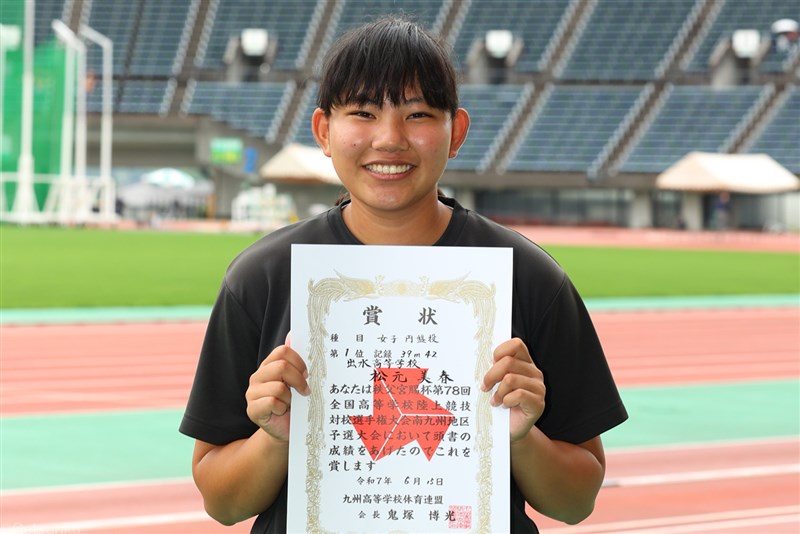 賞状
種目 女子 円盤投
第1位 記録 39m42
出水高等学校
松元 美春
あなたは秩父宮賜杯第78回
全国高等学校陸上競技
対校選手権大会南九州地区
予選大会において頭書の
成績をあげたのでこれを
賞します
令和7年 6月15日
九州高等学校体育連盟
会長 鬼塚 博光